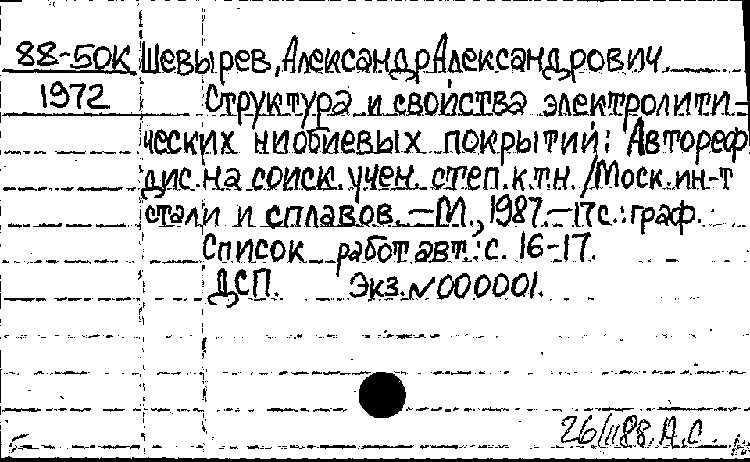 88-50К Шевырев, Александр Александрович.
1972 Структура и свойства электролити-
ческих ниобиевых покрытий: Автореф
дис. на соиск. учен. степ. к.т.н. /Моск. ин-т
стали и сплавов. —М., 1987.—17с.: граф.
Список работ авт.: с. 16-17.
ДСП. Экз.№000001.
26/II 88. А.С.